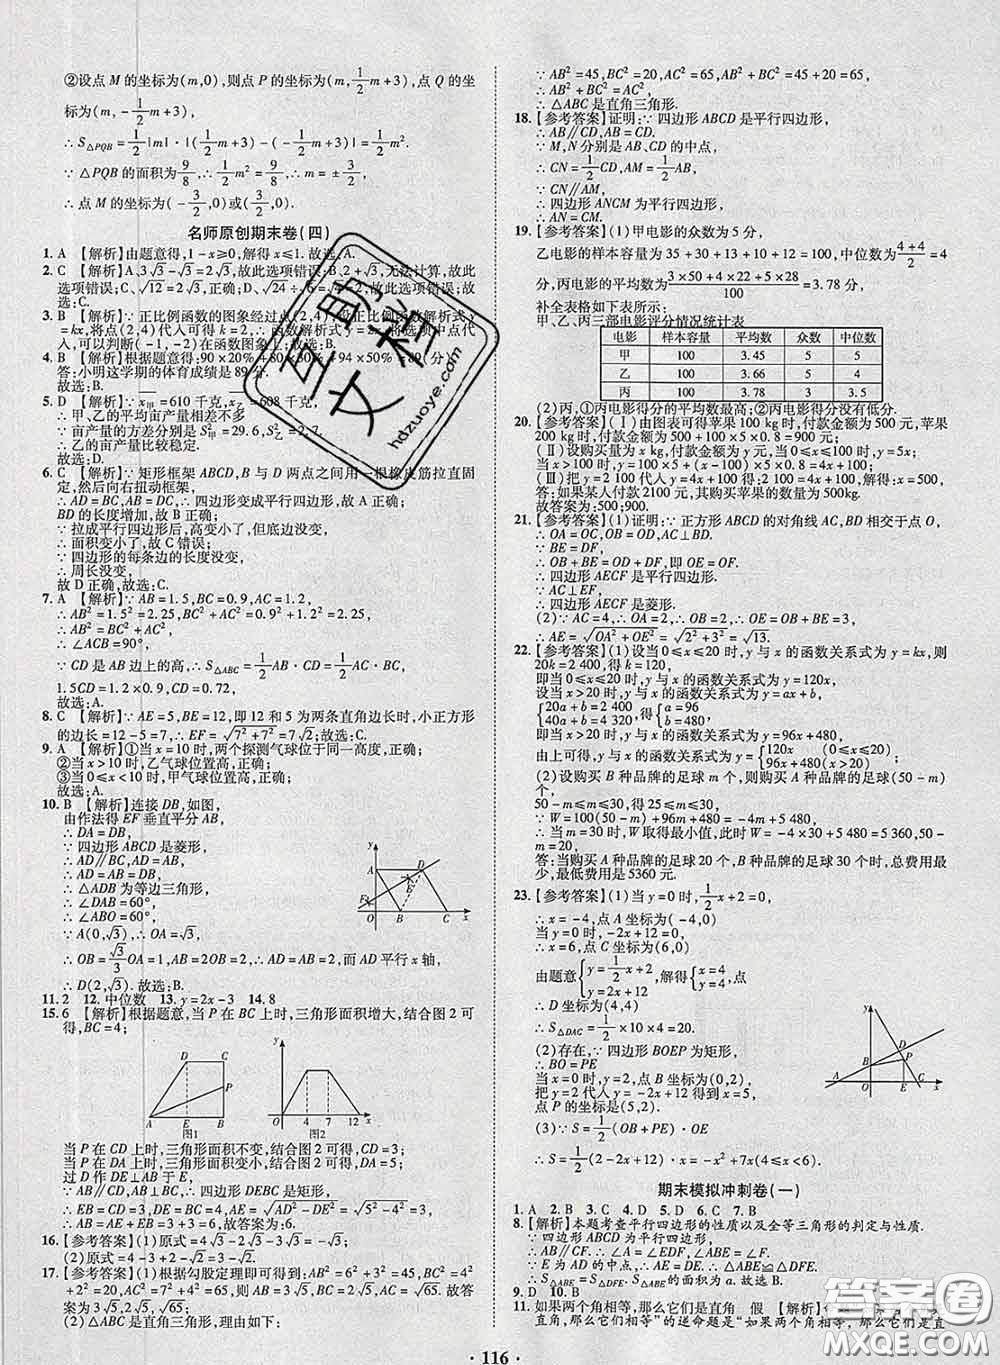 ②设点 M 的坐标为(m,0),则点 P 的坐标为(m,1/2m+3),点 Q 的坐
标为(m,-1/2m+3),
∴S△PQB=1/2|m|·|(1/2m+3)-(-1/2m+3)|=1/2m².
∵△PQB 的面积为9/8,∴1/2m²=9/8,∴m=±3/2,
∴点 M 的坐标为(-3/2,0)或(3/2,0).
名师原创期末卷(四)
1. A 【解析】由题意得,1-x≥0,解得 x≤1.故选:A.
3. B 【解析】∵正比例函数的图象经过点(2,4)
可以判断(-1,-2)在函数图象
4. B 【解析】根据题意得:90×20%+80×30%+94×50%=89(分)
答:小明这学期的体育成绩是 89 分.
故选:B.
∴甲、乙的平均亩产量相差不多
∵亩产量的方差分别是 S²甲=29.6,S²乙=2.7.
∴乙的亩产量比较稳定.
故选:D.
6. C 【解析】∵矩形框架 ABCD,B 与 D 两点之间用一根橡皮筋拉直固
定,然后向右扭动框架,
∴AD=BC,AB=DC,∴四边形变成平行四边形,故 A 正确;
BD 的长度增加,故 B 正确;
∵拉成平行四边形后,高变小了,但底边没变,
∴面积变小了,故 C 错误;
∵四边形的每条边的长度没变,
∴周长没变,
故 D 正确,故选:C.
7. A 【解析】∵AB=1.5,BC=0.9,AC=1.2,
∴AB²=1.5²=2.25,BC²+AC²=0.9²+1.2²=2.25,
∴AB²=BC²+AC²,
∴∠ACB=90°,
∵CD 是 AB 边上的高,∴S△ABC=1/2AB·CD=1/2AC·BC,
1.5CD=1.2×0.9,CD=0.72,
故选:A.
8. C 【解析】∵AE=5,BE=12,即 12 和 5 为两条直角边长时,小正方形
的边长=12-5=7,∴EF=√(7²+7²)=7√2.故选:C.
9. A 【解析】①当 x=10 时,两个探测气球位于同一高度,正确;
②当 x>10 时,乙气球位置高,正确;
③当 0≤x<10 时,甲气球位置高,正确;
故选:A.
10. B 【解析】连接 DB,如图,
由作法得 EF 垂直平分 AB,
∴DA=DB,
∵四边形 ABCD 是菱形,
∴AD∥BC,AD=AB,
∴△ADB 为等边三角形,
∴∠DAB=60°,
∴∠ABO=60°,
∵A(0,√3),∴OA=√3,
∴OB=√3/3OA=1,AB=2OB=2,∴AD=AB=2,而 AD 平行 x 轴,
∴D(2,√3).故选:B.
11. 2 12. 中位数 13. y=2x-3 14. 8
15. 6 【解析】根据题意,当 P 在 BC 上时,三角形面积增大,结合图 2 可
得,BC=4;
D C P A E B 图1
y O 4 7 12 x 图2
当 P 在 CD 上时,三角形面积不变,结合图 2 可得,CD=3;
当 P 在 DA 上时,三角形面积变小,结合图 2 可得,DA=5;
过 D 作 DE⊥AB 于 E,
∵AB∥CD,AB⊥BC,∴四边形 DEBC 是矩形,
∴EB=CD=3,DE=BC=4,AE=√(AD²-DE²)=√(5²-4²)=3,
∴AB=AE+EB=3+3=6.
16. 【参考答案】(1)原式=4√3-2√3-√3=√3;
(2)原式=4-2+3-1=4.
17. 【参考答案】(1)根据勾股定理即可得到:AB²=6²+3²=45,BC²=4²
+2²=20,AC²=8²+1²=65,
故答案为:3√5,2√5,√65;
(2)△ABC 是直角三角形,理由如下:
∵AB²=45,BC²=20,AC²=65,AB²+BC²=45+20=65,
∴AB²+BC²=AC²,
∴△ABC 是直角三角形.
18. 【参考答案】证明:∵四边形 ABCD 是平行四边形,
∴AB∥CD,AB=CD,
∵M,N 分别是 AB、CD 的中点,
∴CN=1/2CD,AM=1/2AB,
∴CN=AM,
∵CN∥AM,
∴四边形 ANCM 为平行四边形,
∴AN=CM.
19. 【参考答案】(1)甲电影的众数为 5 分,
乙电影的样本容量为 35+30+13+10+12=100,中位数为(4+4)/2=4
分,丙电影的平均数为(3×50+4×22+5×28)/100=3.78 分,
补全表格如下表所示:
甲、乙、丙三部电影评分情况统计表
电影 样本容量 平均数 众数 中位数
甲 100 3.45 5 5
乙 100 3.66 5 4
丙 100 3.78 3 3.5
(2)丙,①丙电影得分的平均数最高;②丙电影得分没有低分.
20. 【参考答案】(Ⅰ)由图表可得苹果 100 kg 时,付款金额为 500,苹果
200 kg 时,付款金额为 500+100×5×0.8=900(元);
(Ⅱ)设购买量为 x kg,付款金额为 y 元,当 0≤x≤100 时,y=5x;
当 x>100 时,y=5×100+(x-100)×5×0.8=4x+100;
(Ⅲ)把 y=2 100 代入 y=4x+100 得:2 100=4x+100,x=500
答:如果某人付款 2100 元,其购买苹果的数量为 500kg.
故答案为:500;900.
21. 【参考答案】(1)证明:∵正方形 ABCD 的对角线 AC,BD 相交于点 O,
∴OA=OC,OB=OD,AC⊥BD.
∵BE=DF,
∴OB+BE=OD+DF,即 OE=OF.
∴四边形 AECF 是平行四边形.
∵AC⊥EF,
∴四边形 AECF 是菱形.
(2)∵AC=4,∴OA=2,∴OB=2,∴OE=OB+BE=3,
∴AE=√(OA²+OE²)=√(2²+3²)=√13.
22. 【参考答案】(1)当 0≤x≤20 时,设 y 与 x 的函数关系式为 y=kx,则
20k=2 400,得 k=120,
即当 0≤x≤20 时,y 与 x 的函数关系式为 y=120x,
设当 x>20 时,y 与 x 的函数关系式为 y=ax+b,
{20a+b=2 400 40a+b=4 320,得{a=96 b=480,
即当 x>20 时,y 与 x 的函数关系式为 y=96x+480,
综上可得,y 与 x 的函数关系式为 y={120x(0≤x≤20) 96x+480(x>20);
(2)设购买 B 种品牌的足球 m 个,则购买 A 种品牌的足球(50-m)个,
50-m≤m≤30,得 25≤m≤30,
∴W=100(50-m)+96m+480=-4m+5 480,
∴当 m=30 时,W 取得最小值,此时 W=-4×30+5 480=5 360,50-
m=20,
答:当购买 A 种品牌的足球 20 个,B 种品牌的足球 30 个时,总费用最
少,最低费用是 5360 元.
23. 【参考答案】(1)当 y=0 时,1/2x+2=0,
∴x=-4,点 A 坐标为(-4,0)
当 y=0 时,-2x+12=0
∴x=6,点 C 坐标为(6,0)
由题意{y=1/2x+2 y=-2x+12,解得{x=4 y=4,点
∴D 坐标为(4,4)
∴S△DAC=1/2×10×4=20.
(2)存在,∵四边形 BOEP 为矩形,
∴BO=PE
当 x=0 时,y=2,点 B 坐标为(0,2),
把 y=2 代入 y=-2x+12 得 x=5
点 P 的坐标是(5,2).
(3)∵S=1/2(BO+PE)·OE
∴S=1/2(2-2x+12)·x=-x²+7x(4≤x<6).
期末模拟冲刺卷(一)
1. A 2. B 3. B 4. D 5. D 6. C 7. B
8. 【解析】本题考查平行四边形的性质以及全等三角形的判定与性质.
∵四边形 ABCD 为平行四边形,
∴S△ABE=S△DFE,∵S△ABE的面积为 a.故选:A.
9. D 10. B
11. 如果两个角相等,那么它们是直角 假 【解析】
直角,那么它们相等”的逆命题是“如果两个角相等,那么它们是直
·116·
互助文档
hdzuoye.com
答案圈
MXQE.COM